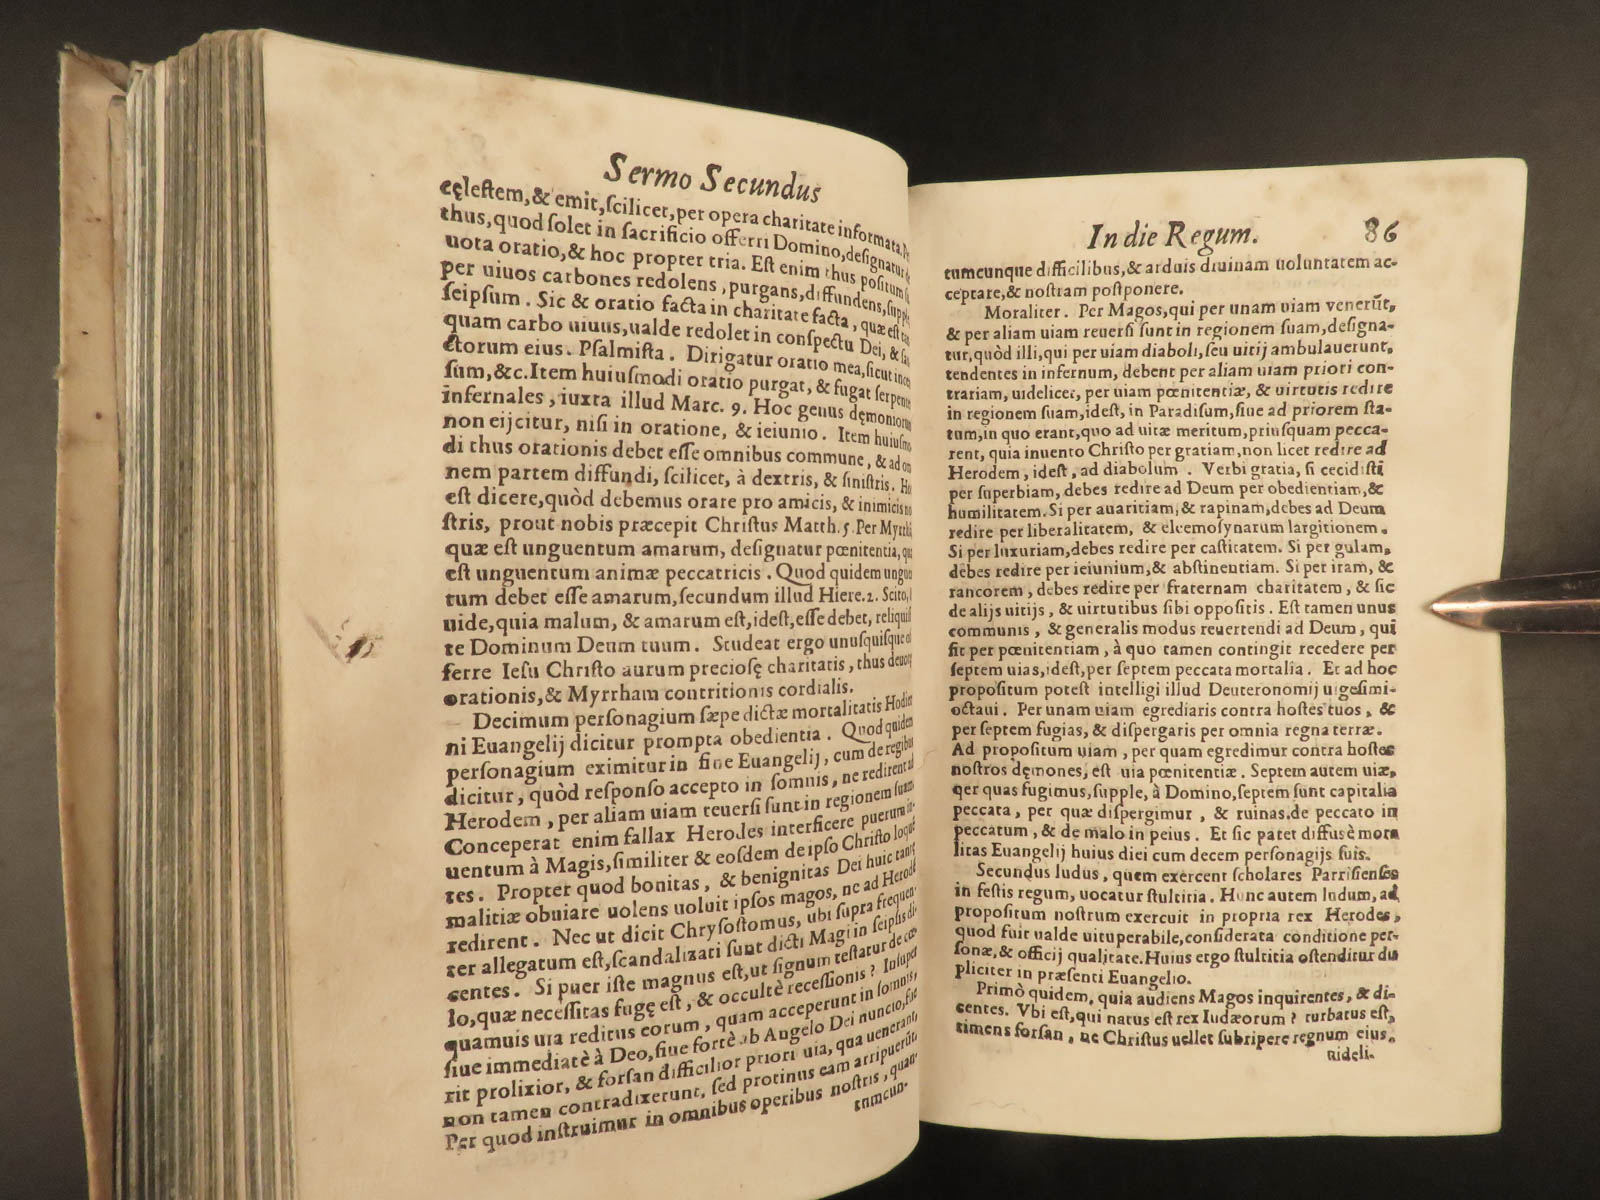 Sermo Secundus
cęlestem, & emit, scilicet, per opera charitate informata. Per
thus, quod solet in sacrificio offerri Domino, designatur de
uota oratio, & hoc propter tria. Est enim thus positum su
per uiuos carbones redolens, purgans, diffundens, supple,
seipsum. Sic & oratio facta in charitate facta, quæ est tan
quam carbo uiuus, ualde redolet in conspectu Dei, & san
ctorum eius. Psalmista. Dirigatur oratio mea, sicut incen
sum, &c. Item huiusmodi oratio purgat, & fugat serpentes
infernales, iuxta illud Marc. 9. Hoc genus dęmoniorum
non eijcitur, nisi in oratione, & ieiunio. Item huiusmo
di thus orationis debet esse omnibus commune, & ad om
nem partem diffundi, scilicet, à dextris, & sinistris. Hoc
est dicere, quòd debemus orare pro amicis, & inimicis no
stris, prout nobis præcepit Christus Matth. 5. Per Myrrhã
quæ est unguentum amarum, designatur pœnitentia, quæ
est unguentum animæ peccatricis. Quod quidem unguen
tum debet esse amarum, secundum illud Hiere. 2. Scito, &
uide, quia malum, & amarum est, idest, esse debet, reliquis
te Dominum Deum tuum. Studeat ergo unusquisque of
ferre Iesu Christo aurum preciosę charitatis, thus deuotę
orationis, & Myrrham contritionis cordialis.
Decimum personagium sæpe dictæ mortalitatis Hodier
ni Euangelij dicitur prompta obedientia. Quod quidem
personagium eximitur in fine Euangelij, cum de regibus
dicitur, quòd responso accepto in somnis, ne redirent ad
Herodem, per aliam uiam reuersi sunt in regionem suam.
Conceperat enim fallax Herodes interficere puerum in-
uentum à Magis, similiter & eosdem de ipso Christo loquẽ
tes. Propter quod bonitas, & benignitas Dei huic tantę
malitiæ obuiare uolens uoluit ipsos magos, ne ad Herodẽ
redirent. Nec ut dicit Chrysostomus, ubi supra frequen-
ter allegatum est, scandalizati sunt dicti Magi in seipsis di-
centes. Si puer iste magnus est, ut signum testatur de cœ-
lo, quæ necessitas fugę est, & occultè recessionis? Insuper
quamuis uia reditus eorum, quam acceperunt in somnis,
siue immediatè à Deo, siue fortè ab Angelo Dei nuncio, fue
rit prolixior, & forsan difficilior priori uia, qua uenerant,
non tamen contradixerunt, sed protinus eam arripuerũt.
Per quod instruimur in omnibus operibus nostris, quan-
tumcun-
In die Regum. 86
tumcunque difficilibus, & arduis diuinam uoluntatem ac-
ceptare, & nostram postponere.
Moraliter. Per Magos, qui per unam uiam venerũt,
& per aliam uiam reuersi sunt in regionem suam, designa-
tur, quòd illi, qui per uiam diaboli, seu uitij ambulauerunt,
tendentes in infernum, debent per aliam uiam priori con-
trariam, uidelicet, per uiam pœnitentiæ, & uirtutis redire
in regionem suam, idest, in Paradisum, siue ad priorem sta-
tum, in quo erant, quo ad uitæ meritum, priusquam pecca-
rent, quia inuento Christo per gratiam, non licet redire ad
Herodem, idest, ad diabolum. Verbi gratia, si cecidisti
per superbiam, debes redire ad Deum per obedientiam, &
humilitatem. Si per auaritiam, & rapinam, debes ad Deum
redire per liberalitatem, & eleemosynarum largitionem.
Si per luxuriam, debes redire per castitatem. Si per gulam,
debes redire per ieiunium, & abstinentiam. Si per iram, &
rancorem, debes redire per fraternam charitatem, & sic
de alijs uitijs, & uirtutibus sibi oppositis. Est tamen unus
communis, & generalis modus reuertendi ad Deum, qui
fit per pœnitentiam, à quo tamen contingit recedere per
septem uias, idest, per septem peccata mortalia. Et ad hoc
propositum potest intelligi illud Deuteronomij uigesimi-
octaui. Per unam uiam egrediaris contra hostes tuos, &
per septem fugias, & dispergaris per omnia regna terræ.
Ad propositum uiam, per quam egredimur contra hostes
nostros dęmones, est uia pœnitentiæ. Septem autem uiæ,
qer quas fugimus, supple, à Domino, septem sunt capitalia
peccata, per quæ dispergimur, & ruinas. de peccato in
peccatum, & de malo in peius. Et sic patet diffusè mora
litas Euangelij huius diei cum decem personagijs suis.
Secundus ludus, quem exercent scholares Parrisienses
in festis regum, uocatur stultitia. Hunc autem ludum, ad
propositum nostrum exercuit in propria rex Herodes,
quod fuit ualde uituperabile, considerata conditione per-
sonæ, & officij qualitate. Huius ergo stultitia ostenditur du
pliciter in præsenti Euangelio.
Primò quidem, quia audiens Magos inquirentes, & di-
centes. Vbi est, qui natus est rex Iudæorum? turbatus est,
timens forsan, ne Christus uellet subripere regnum eius.
uideli-